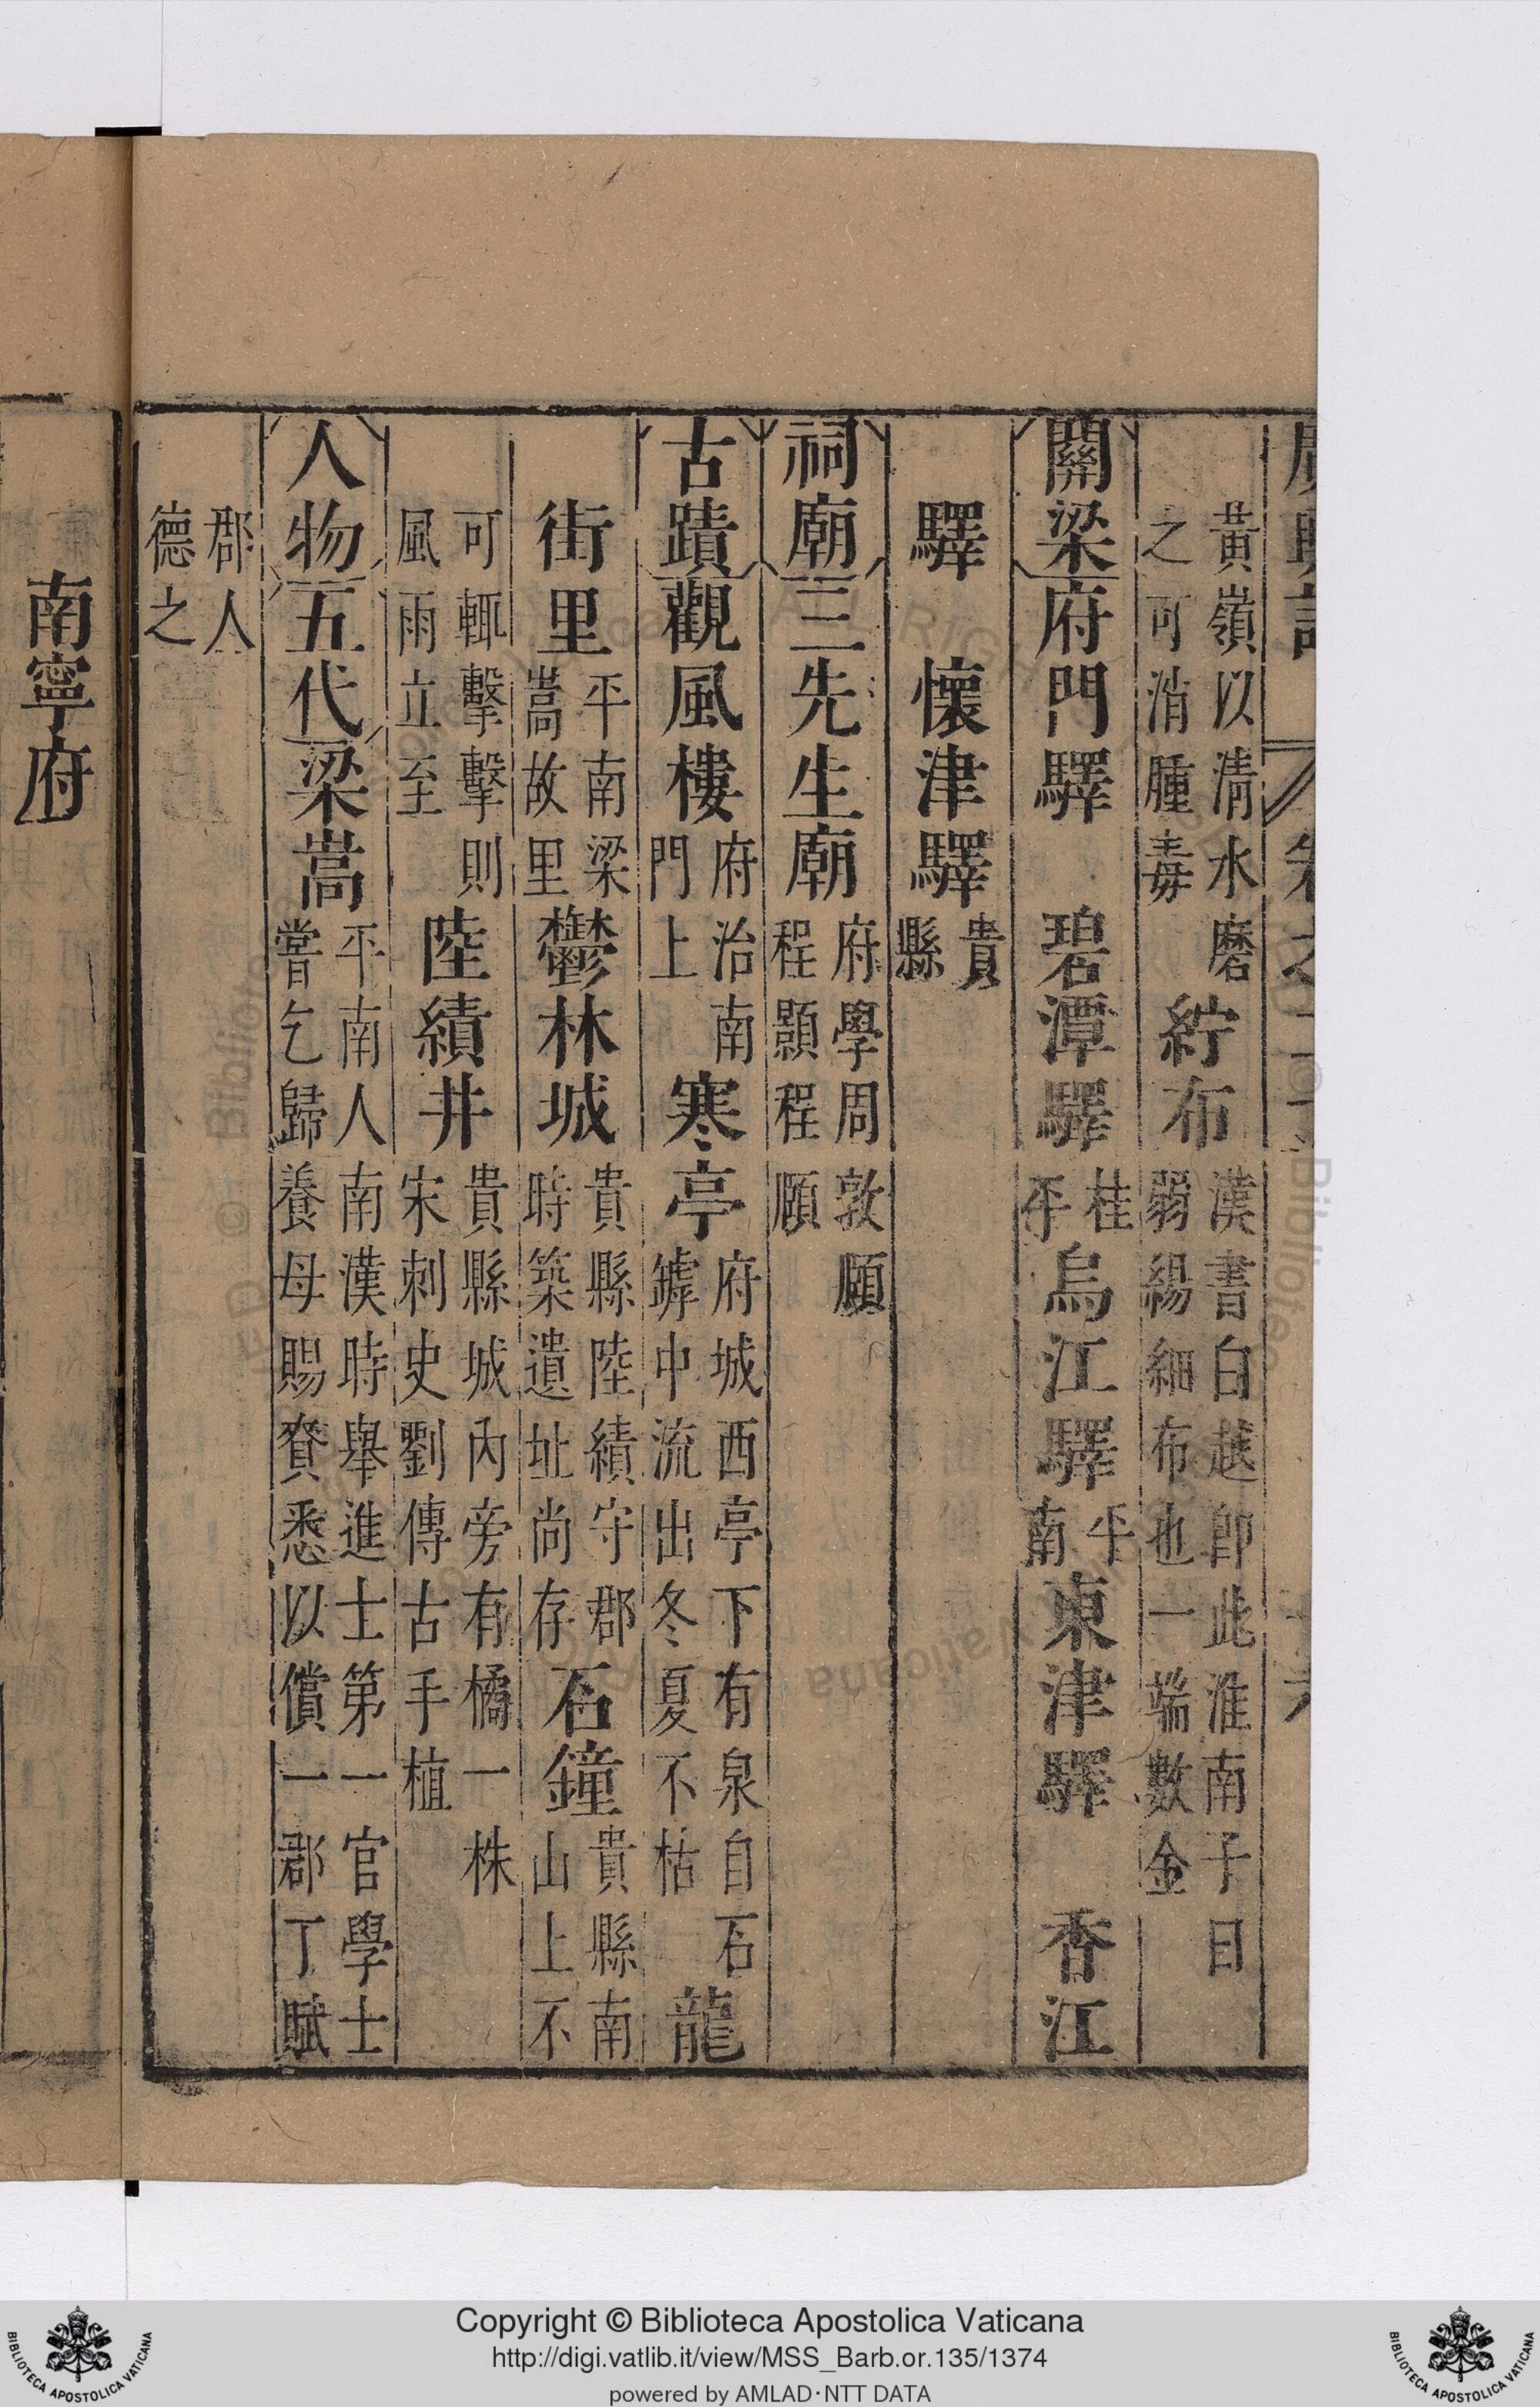 黃嶺以淸水磨之可消腫毒 紵布 漢書白越卽此淮南子曰弱緆細布也一端數金
關梁 府門驛 碧潭驛 桂平 烏江驛 平南 東津驛 香江
驛 懷津驛 貴縣
祠廟 三先生廟 府學周敦頤程顥程頤
古蹟 觀風樓 府治南門上 寒亭 府城西亭下有泉自石罅中流出冬夏不枯 龍
街里 平南梁嵩故里 鬱林城 貴縣陸績守郡時築遺址尚存 石鐘 貴縣南山上不
可輒擊擊則風雨立至 陸績井 貴縣城內旁有橘一株宋刺史劉傳古手植
人物 五代 梁嵩 平南人南漢時舉進士第一官學士嘗乞歸養母賜賚悉以償一郡丁賦
郡人德之
南寧府
Copyright © Biblioteca Apostolica Vaticana
http://digi.vatlib.it/view/MSS_Barb.or.135/1374
powered by AMLAD·NTT DATA
BIBLIOTECA APOSTOLICA VATICANA
BIBLIOTECA APOSTOLICA VATICANA